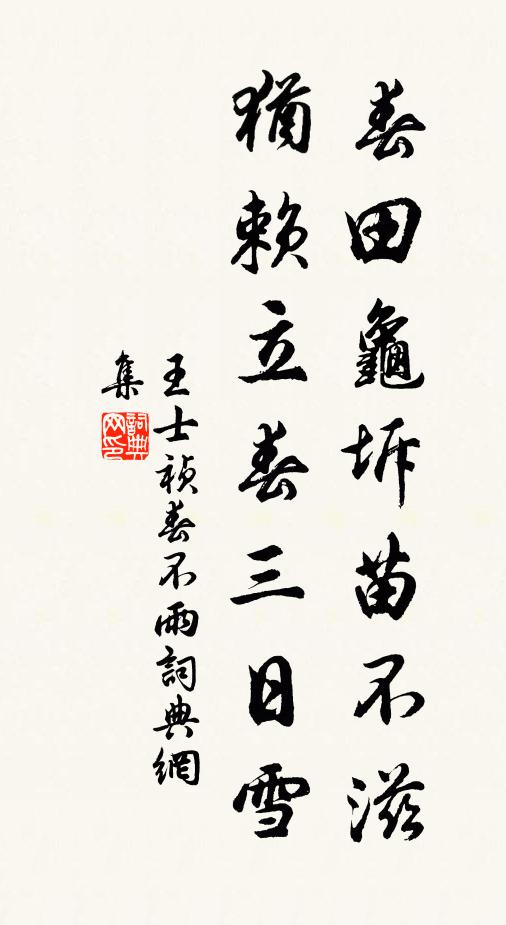 春田龜坼苗不滋
猶賴立春三日雪
王士禎春不雨詞典網
集
詞典
网印